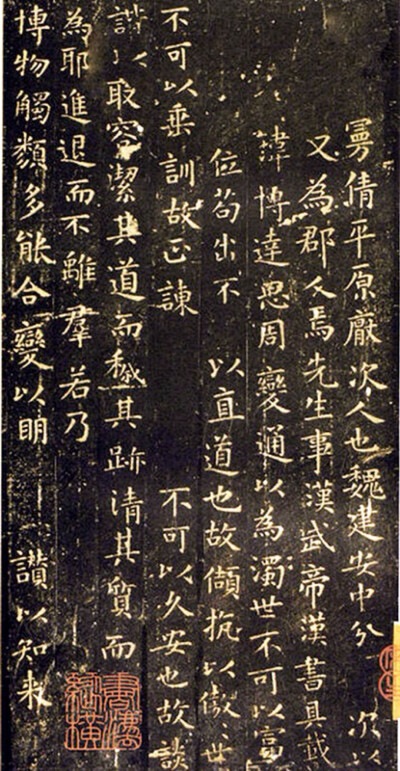 曼倩平原厭次人也魏建安中分 次以
又為郡人焉先生事漢武帝漢書具載
瑋博達思周變通以為濁世不可以富
位苟出不 以直道也故傾抗以傲世
不可以垂訓故正諫 不可以久安也故談
諧以取容潔其道而穢其跡清其質而
為耶進退而不離羣若乃
博物觸類多能合變以明 讃以知來